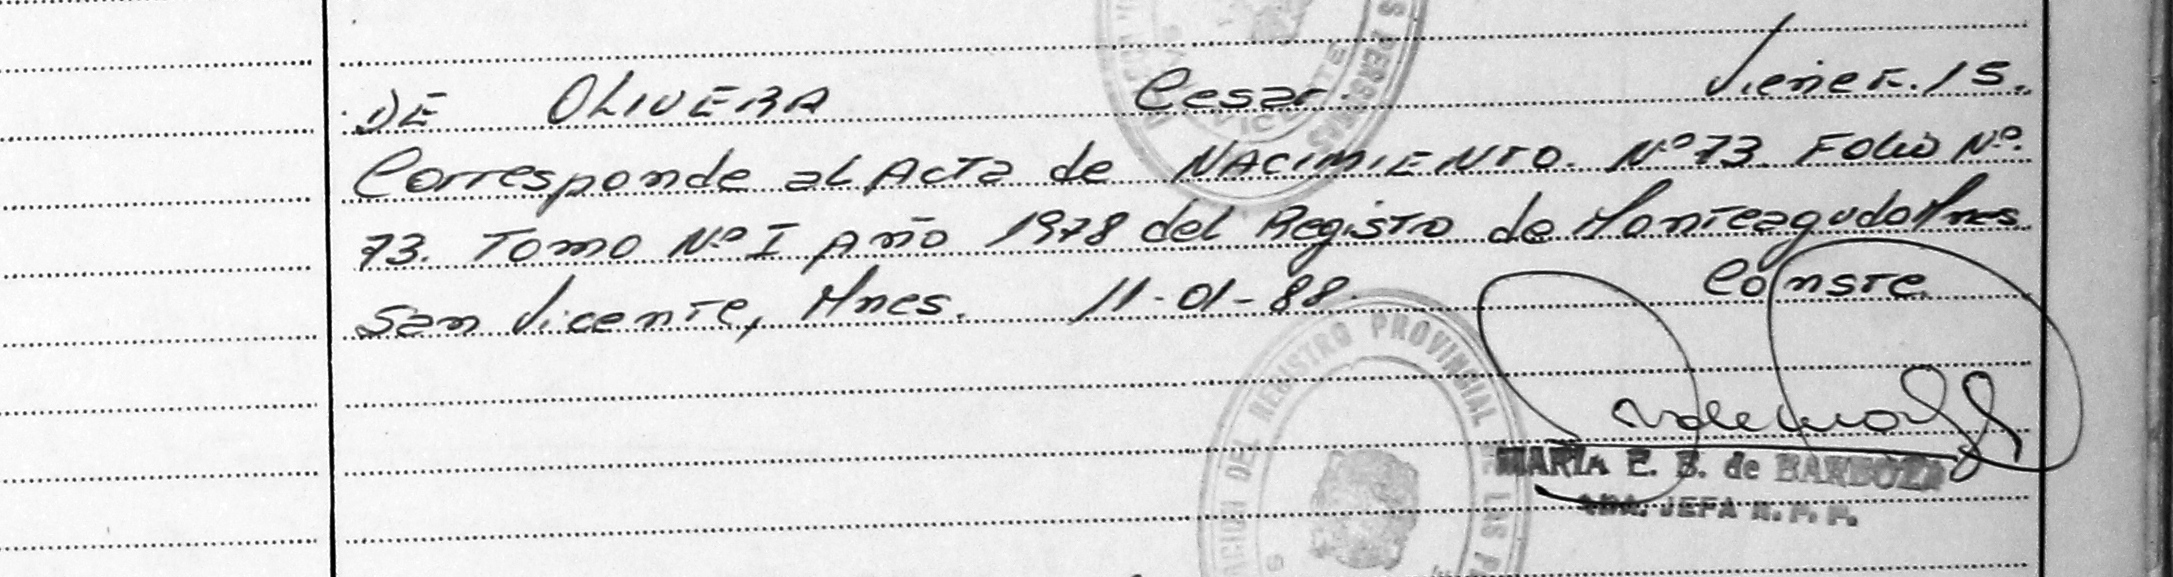 DE OLIVERA Cesar Viene F. 15.
Corresponde al Acta de NACIMIENTO. Nº 73 Folio Nº.
73. Tomo Nº I Año 1978 del Registro de Monteagudo Mnes
San Vicente, Mnes. 11-01-88. Conste
REGISTRO PROVINCIAL
MARIA E. B. de BARBOZA
JEFA R. P. P.